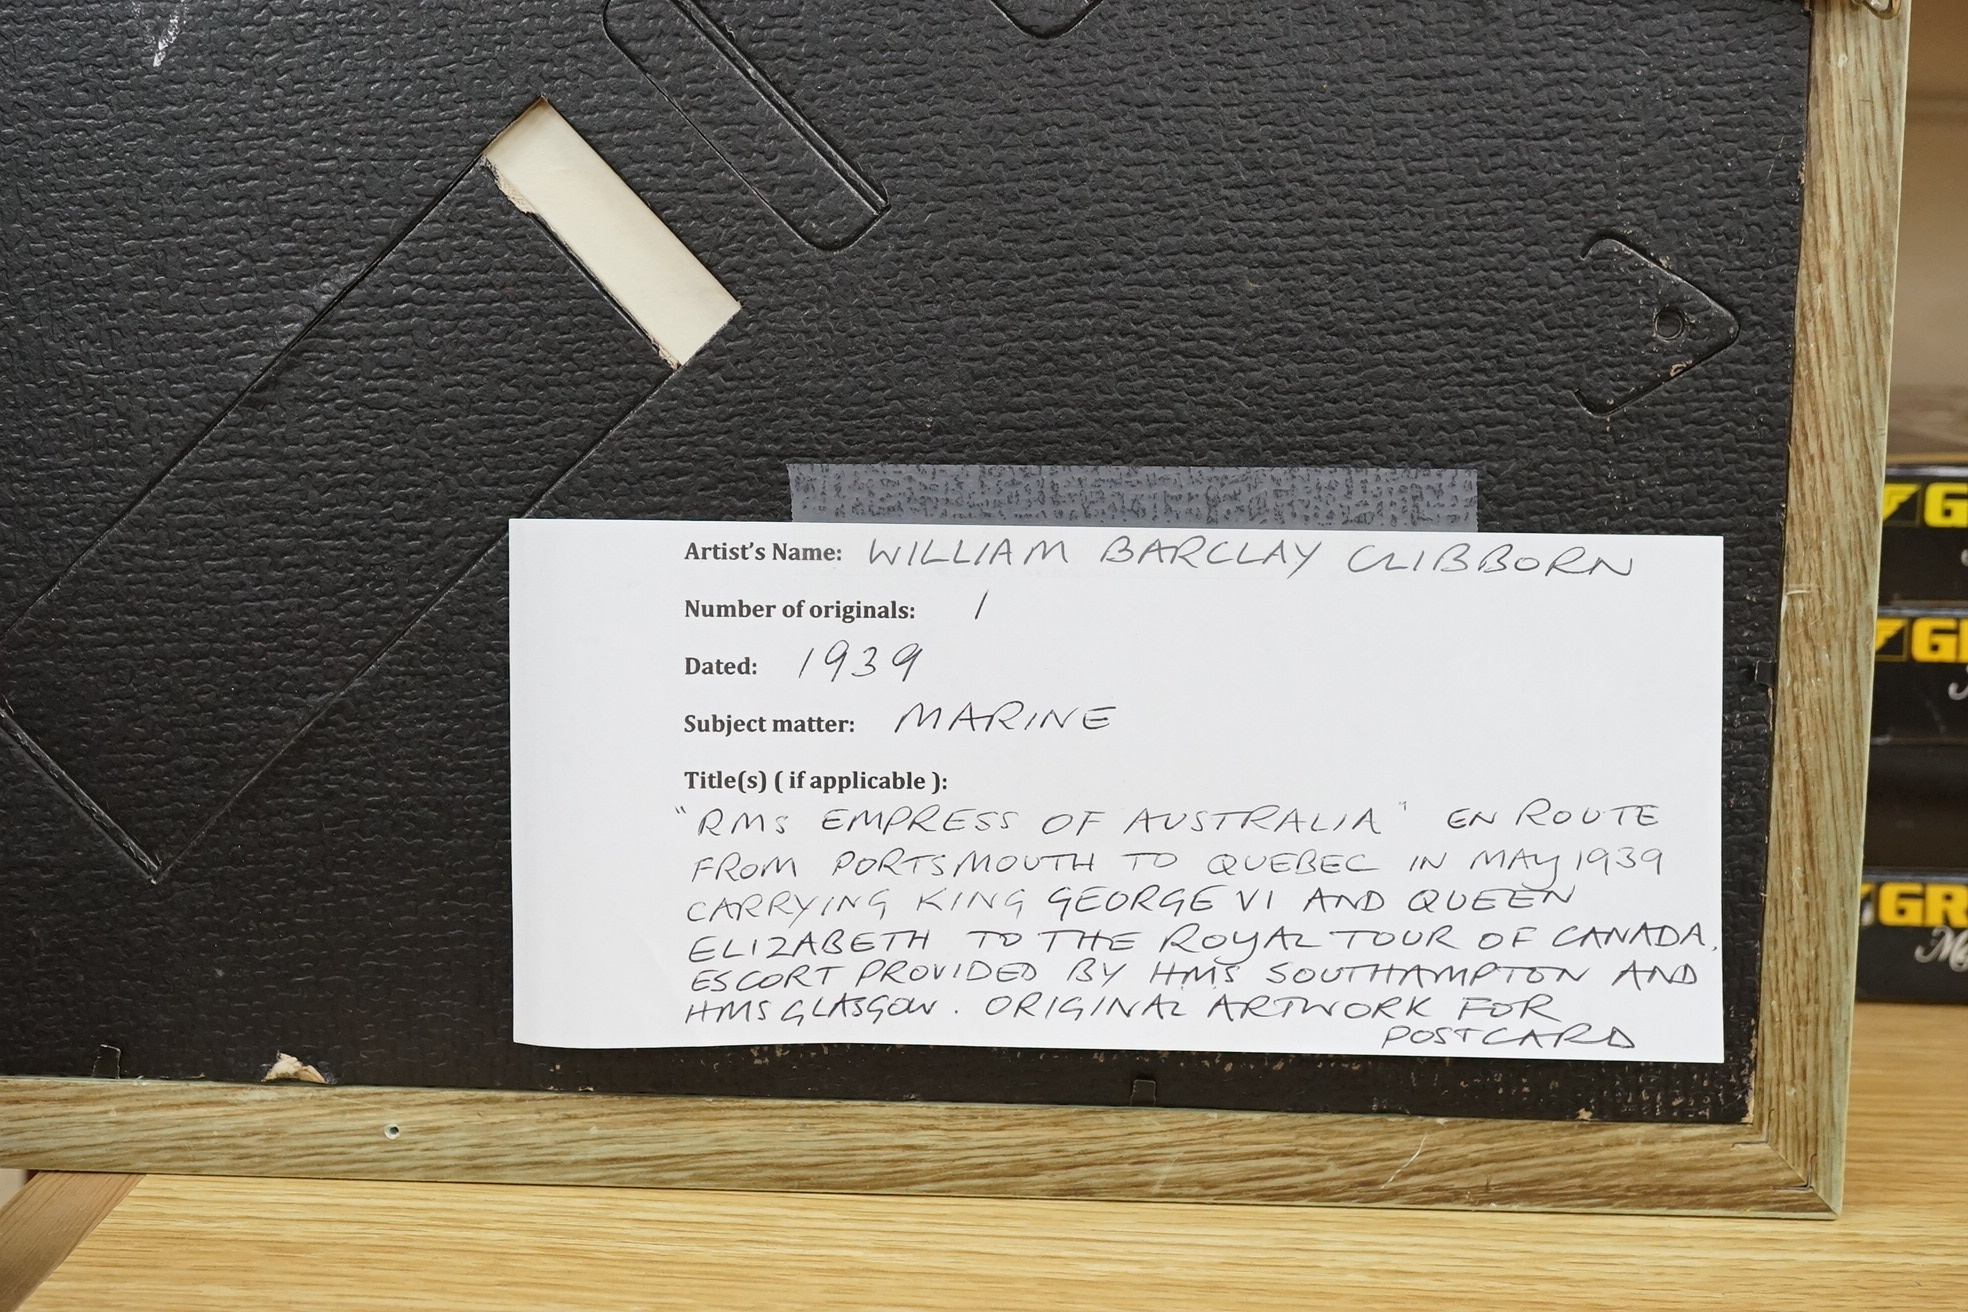 Artist's Name: WILLIAM BARCLAY CLIBBORN
Number of originals: 1
Dated: 1939
Subject matter: MARINE
Title(s) ( if applicable ):
"RMS EMPRESS OF AUSTRALIA" EN ROUTE
FROM PORTSMOUTH TO QUEBEC IN MAY 1939
CARRYING KING GEORGE VI AND QUEEN
ELIZABETH TO THE ROYAL TOUR OF CANADA.
ESCORT PROVIDED BY HMS SOUTHAMPTON AND
HMS GLASGOW. ORIGINAL ARTWORK FOR
POSTCARD
G
GR
GR